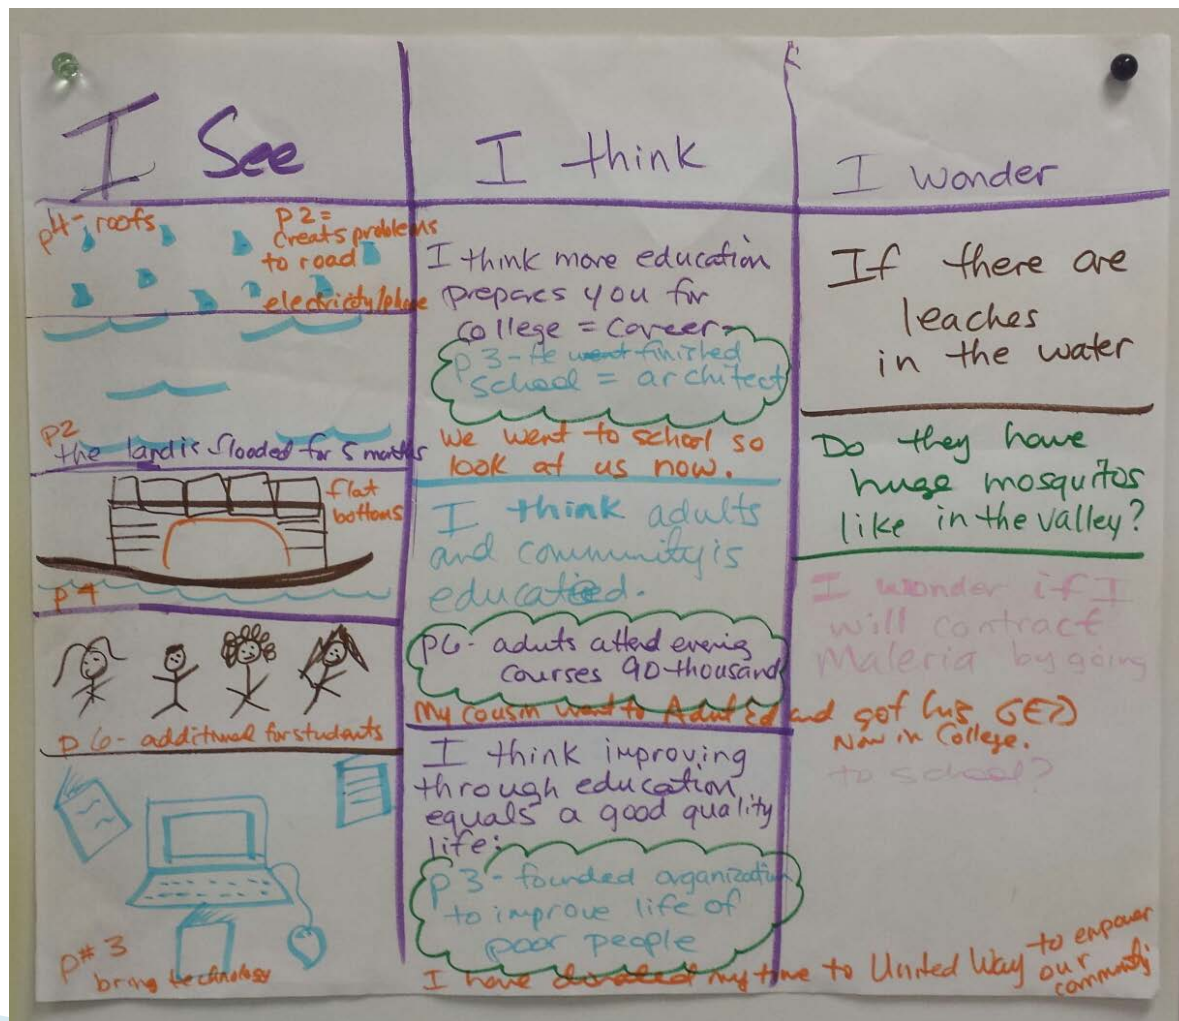 I See
p4- roofs
p2=
creats problems
to road
electricity/phone
p2
the land is flooded for 5 months
flat
bottoms
p4
p6- additional for students
p#3
bring technology
I think
I think more education
prepares you for
college = career
p3- He went finished
school = architect
We went to school so
look at us now.
I think adults
and community is
educated.
p6- aduts atted evening
courses 90 thousand
My cousin went to Adult Ed and got his GED
Now in College.
I think improving
through education
equals a good quality
life:
p3- founded organization
to improve life of
poor people
I have donated my time to United Way to enpower
our
community
I wonder
If there are
leaches
in the water
Do they have
huge mosquitos
like in the valley?
I wonder if I
will contract
Maleria by going
to school?